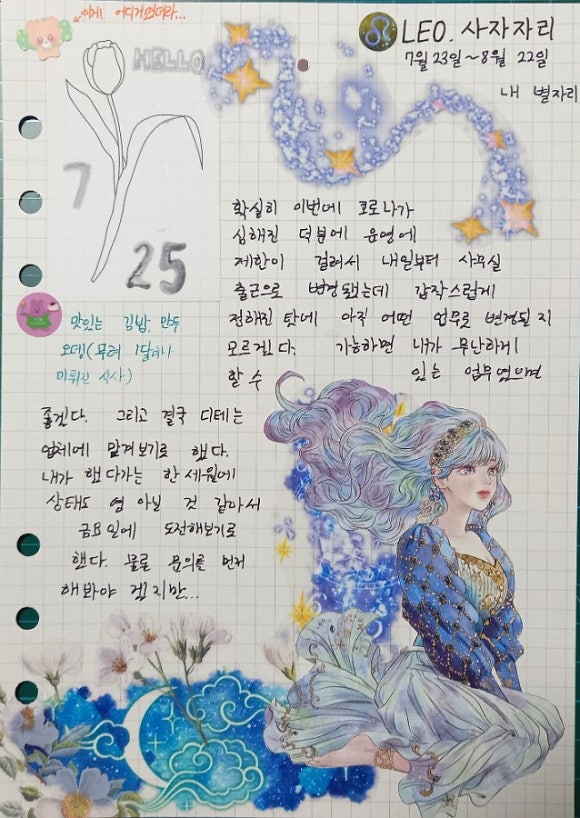 이게 어디꺼였더라...
HELLO
7
25
LEO. 사자자리
7월 23일~8월 22일
내 별자리
확실히 이번에 코로나가
심해진 덕분에 운영에
제한이 걸려서 내일부터 사무실
출근으로 변경됐는데 갑작스럽게
정해진 탓에 아직 어떤 업무로 변경될 지
모르겠다. 가능하면 내가 무난하게
할 수 있는 업무였으면
맛있는 김밥, 만두
오뎅(무려 1달이나
미뤄진 식사)
좋겠다. 그리고 결국 디테는
업체에 맡겨보기로 했다.
내가 했다가는 한세월에
상태도 영 아닐 것 같아서
금요일에 도전해보기로
했다. 물론 문의를 먼저
해봐야 겠지만...